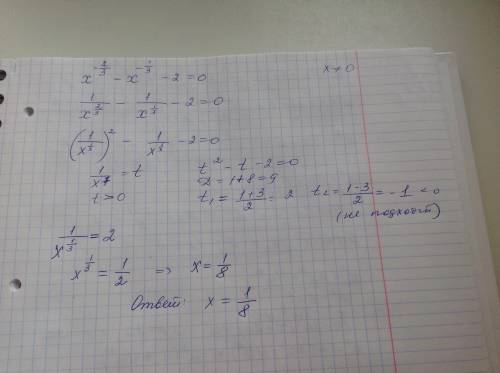 x^{-2/3} - x^{-1/3} - 2 = 0   x > 0
1/x^{2/3} - 1/x^{1/3} - 2 = 0
(1/x^{1/3})^2 - 1/x^{1/3} - 2 = 0
1/x^{1/3} = t   t^2 - t - 2 = 0
t > 0   D = 1+8 = 9
t_1 = (1+3)/2 = 2   t_2 = (1-3)/2 = -1 < 0
(не подходит)
1/x^{1/3} = 2
x^{1/3} = 1/2 => x = 1/8
Ответ: x = 1/8